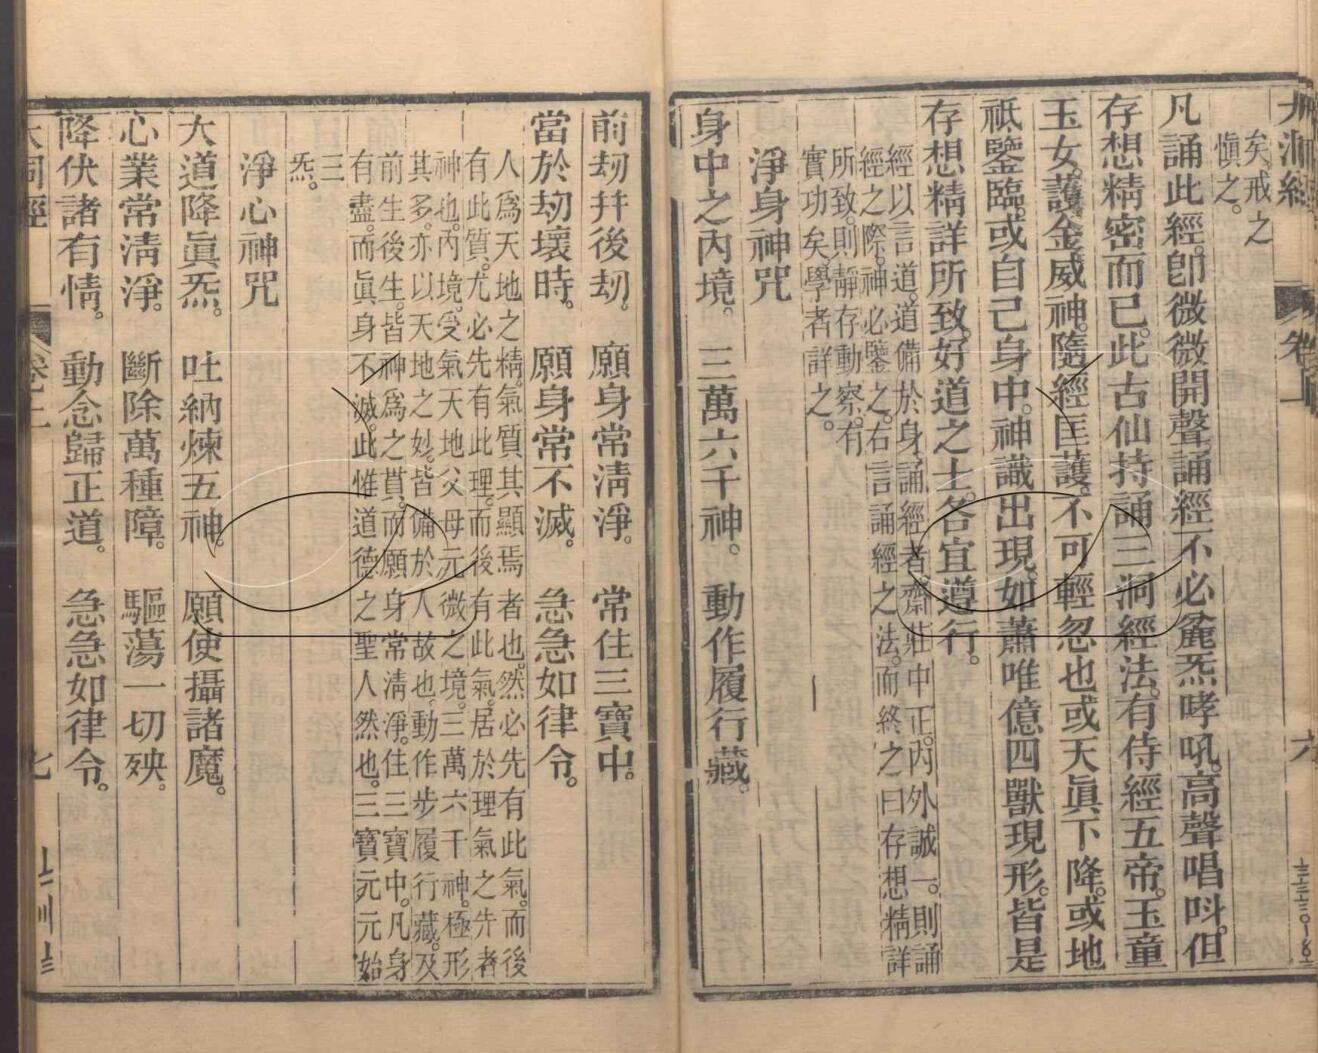 大洞經 卷上 六
矣戒之
慎之。
凡誦此經。卽微微開聲誦經不必麁炁哮吼。高聲唱呌。但
存想精密而已。此古仙持誦三洞經法。有侍經五帝。玉童
玉女。護金威神。隨經匡護。不可輕忽也或天眞下降。或地
祇鑒臨。或自己身中。神識出現。如蕭唯億四獸現形。皆是
存想精詳所致。好道之士。各宜遵行。
經以言道。道備於身誦經者。齋莊中正。內外誠一。則誦
經之際。神必鑒之。右言誦經之法。而終之曰存想精詳
所致。則靜存動察。有
實功矣學者詳之。
淨身神咒
身中之內境。 三萬六千神。 動作履行藏。
前刼并後刼。 願身常淸淨。 常住三寶中。
當於刼壞時。 願身常不滅。 急急如律令。
人爲天地之精。氣質其顯焉者也。然必先有此氣。而後
有此質。尤必先有此理。而後有此氣。居於理氣之先者
神也。內境。受氣天地父母元微之境。三萬六千神。極形
其多。亦以天地之妙。皆備於人故也。動作步履行藏。及
前生後生。皆神爲之貫。而願身常淸淨。住三寶中。凡身
有盡。而眞身不滅。此惟道德之聖人然也。三寶元元始
三
炁。
淨心神咒
大道降眞炁。 吐納煉五神。 願使攝諸魔。
心業常淸淨。 斷除萬種障。 驅蕩一切殃。
降伏諸有情。 動念歸正道。 急急如律令。
大洞經 卷上 七